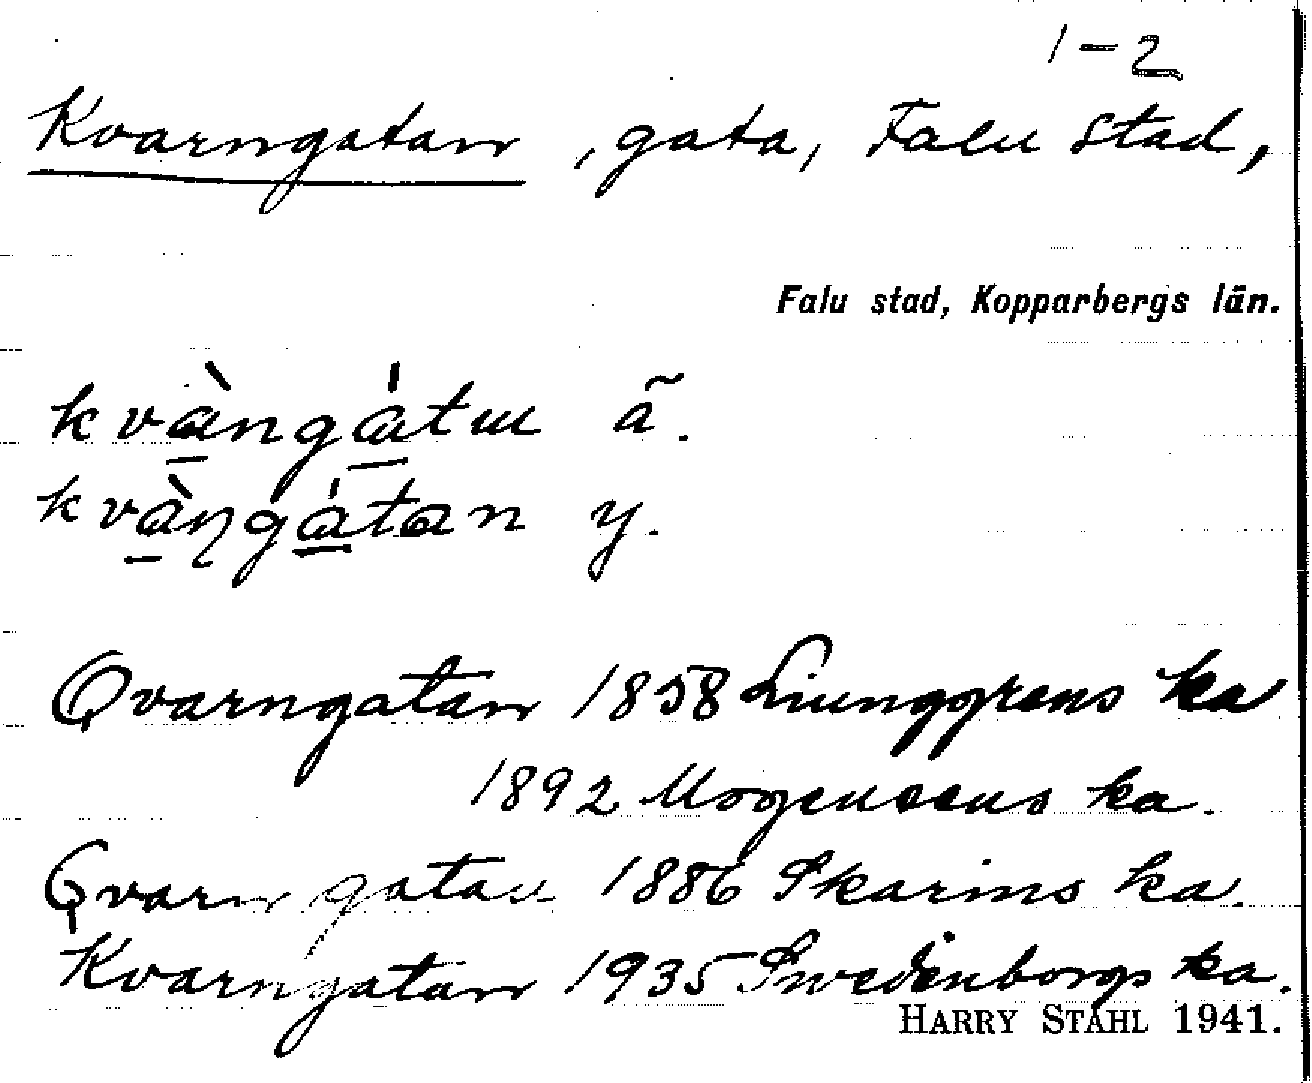 1-2
Kvarngatan, gata, Falu stad,
Falu stad, Kopparbergs län.
ä.
y.
Qvarngatan 1858 Liunggrens ka
1892 Mogensens ka.
Qvarngatan 1886 Skarins ka.
Kvarngatan 1935 Swedenborgs ka.
HARRY STÅHL 1941.